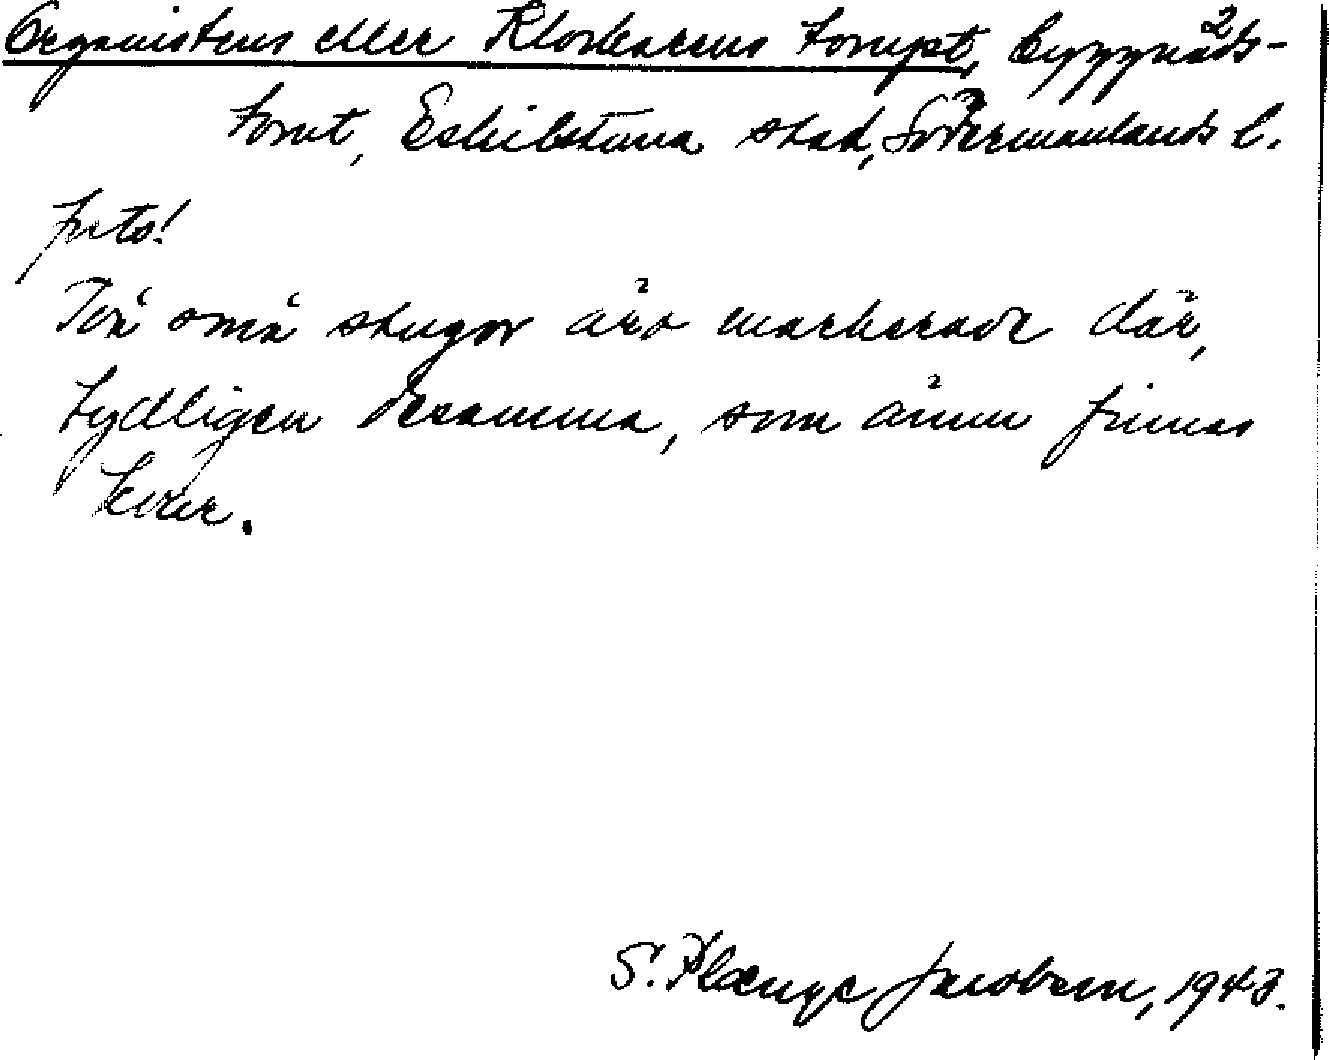 Organistens eller Klockarens tompt, byggnads-
tomt, Eskilstuna stad, Södermanlands l.
foto!
Två små stugor äro markerade där,
tydligen desamma, som ännu finnas
kvar.
S. Plænge Jacobson, 1943.